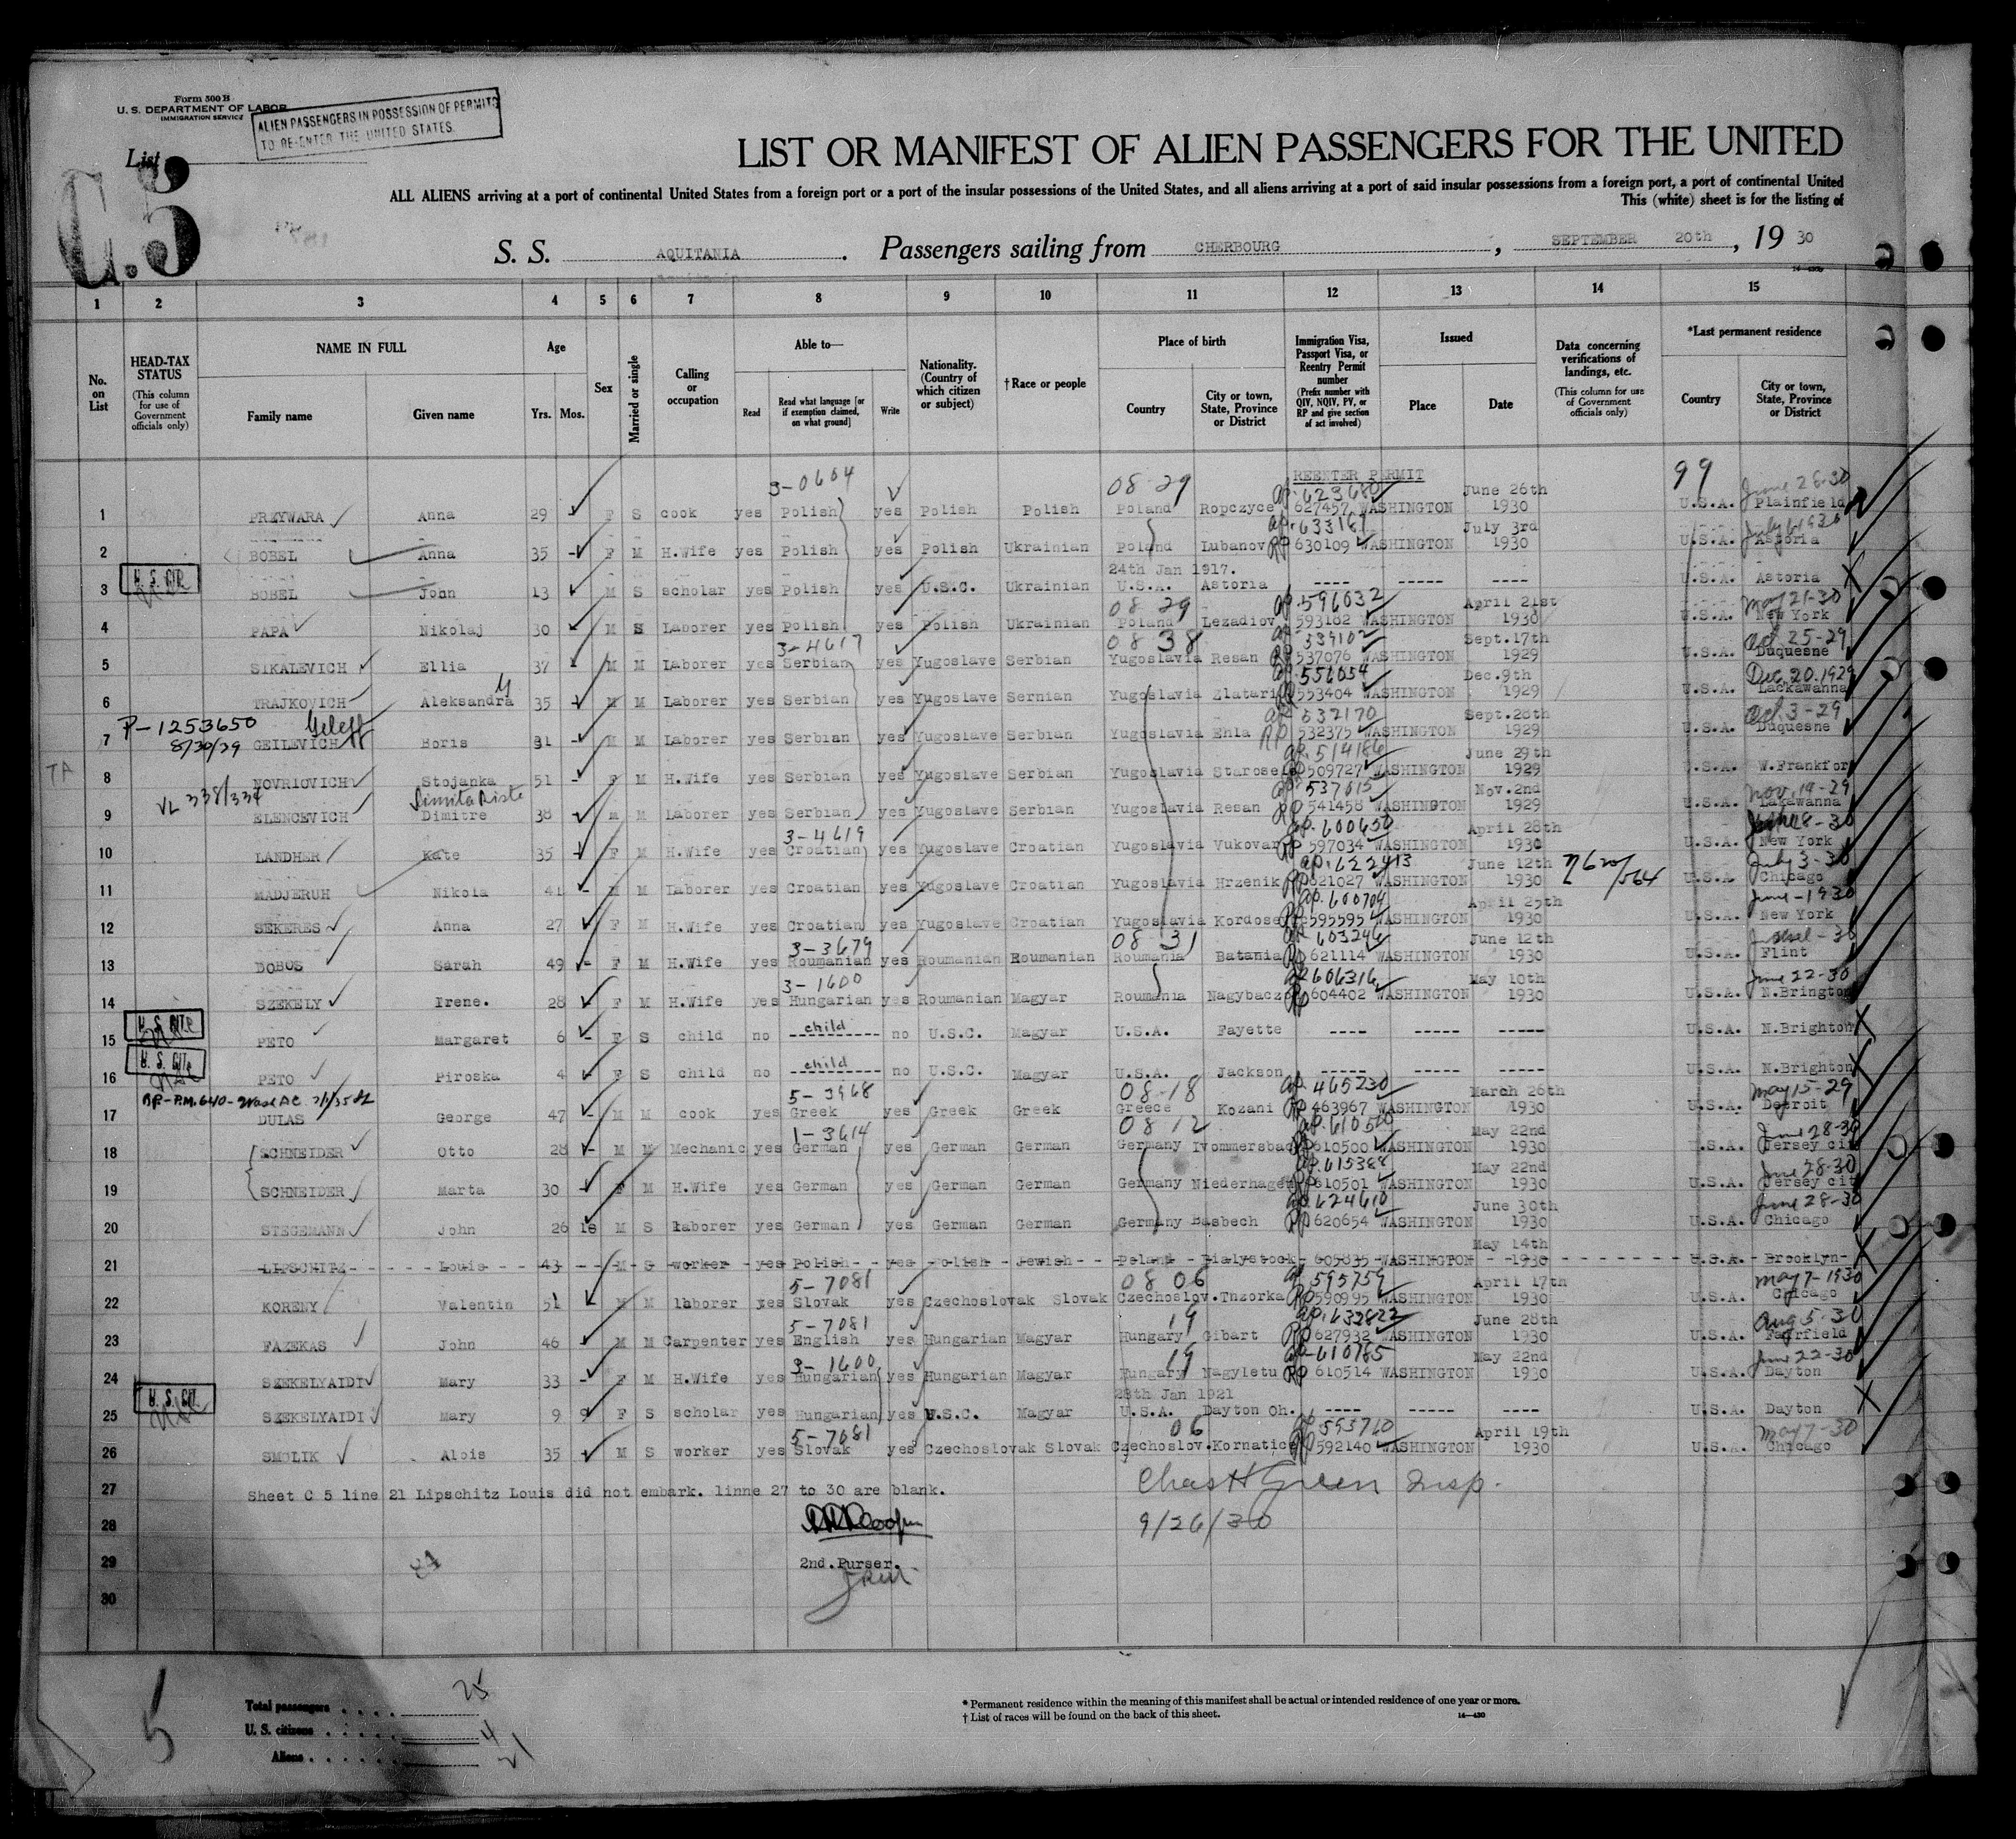 Form 500 B
U. S. DEPARTMENT OF LABOR
IMMIGRATION SERVICE
ALIEN PASSENGERS IN POSSESSION OF PERMITS
TO RE-ENTER THE UNITED STATES.
List
C.5
LIST OR MANIFEST OF ALIEN PASSENGERS FOR THE UNITED
ALL ALIENS arriving at a port of continental United States from a foreign port or a port of the insular possessions of the United States, and all aliens arriving at a port of said insular possessions from a foreign port, a port of continental United
This (white) sheet is for the listing of
S. S. AQUITANIA. Passengers sailing from CHERBOURG, SEPTEMBER 20th, 19 30
1 2 3 4 5 6 7 8 9 10 11 12 13 14 15
No. on List
HEAD-TAX STATUS (This column for use of Government officials only)
NAME IN FULL Family name Given name
Age Yrs. Mos.
Sex
Married or single
Calling or occupation
Able to— Read Read what language [or if exemption claimed, on what ground] Write
Nationality. (Country of which citizen or subject)
†Race or people
Place of birth Country City or town, State, Province or District
Immigration Visa, Passport Visa, or Reentry Permit number (Prefix number with QIV, NQIV, PV, or RP and give section of act involved)
Issued Place Date
Data concerning verifications of landings, etc. (This column for use of Government officials only)
*Last permanent residence Country City or town, State, Province or District
3-0604 08-29 REENTER PERMIT 99
1 PRZYWARA Anna 29 F S cook yes Polish yes Polish Polish Poland Ropczyce 627457 WASHINGTON June 26th 1930 U.S.A. Plainfield June 28-30
2 BOBEL Anna 35 F M H.Wife yes Polish yes Polish Ukrainian Poland Lubanov RP 630109 WASHINGTON July 3rd 1930 U.S.A. Astoria
24th Jan 1917.
U. S. CIT.
3 BOBEL John 13 M S scholar yes Polish yes U.S.C. Ukrainian U.S.A. Astoria ---- ----- ---- U.S.A. Astoria
08 29 596032
4 PAPA Nikolaj 30 M S Laborer yes Polish yes Polish Ukrainian Poland Lezadiov 593182 WASHINGTON April 21st 1930 U.S.A. New York May 21-30
3-4617 08 38 539102
5 SIKALEVICH Ellia 37 M M Laborer yes Serbian yes Yugoslave Serbian Yugoslavia Resan RP 537076 WASHINGTON Sept.17th 1929 U.S.A. Duquesne Oct. 25-29
556054
6 TRAJKOVICH Aleksandra 35 M M Laborer yes Serbian yes Yugoslave Sernian Yugoslavia Zlatari 553404 WASHINGTON Dec.9th 1929 U.S.A. Lackawanna Dec 20. 1929
P-1253650 8/30/39 Geleff 532170
7 GEILEVICH Boris 31 M M Laborer yes Serbian yes Yugoslave Serbian Yugoslavia Ehla RP 532375 WASHINGTON Sept.28th 1929 U.S.A. Duquesne Oct. 3-29
514186
8 NOVRIOVICH Stojanka 51 F M H.Wife yes Serbian yes Yugoslave Serbian Yugoslavia Starosel 509727 WASHINGTON June 29th 1929 U.S.A. W.Frankfor
VL 338/334 537615
9 ELENCEVICH Dimitre 38 M M Laborer yes Serbian yes Yugoslave Serbian Yugoslavia Resan RP 541458 WASHINGTON Nov.2nd 1929 U.S.A. Lakawanna Nov. 19-29
3-4619 600650
10 LANDHER Kate 35 F M H.Wife yes Croatian yes Yugoslave Croatian Yugoslavia Vukovar RP 597034 WASHINGTON April 28th 1930 U.S.A. New York
622413
11 MADJERUH Nikola 41 M M Laborer yes Croatian yes Yugoslave Croatian Yugoslavia Hrzenik 621027 WASHINGTON June 12th 1930 U.S.A Chicago July 3-30
600704
12 SEKERES Anna 27 F M H.Wife yes Croatian yes Yugoslave Croatian Yugoslavia Kordose 595595 WASHINGTON April 25th 1930 U.S.A. New York June-1930
3-3679 08-31 603246
13 DOBOS Sarah 49 F M H.Wife yes Roumanian yes Roumanian Roumanian Roumania Batania RP 621114 WASHINGTON June 12th 1930 U.S.A. Flint
3-1600 606316
14 SZEKELY Irene. 28 F M H.Wife yes Hungarian yes Roumanian Magyar Roumania Nagybacz RP 604402 WASHINGTON May 10th 1930 U.S.A. N.Brington June 22-30
U. S. CIT.
15 PETO Margaret 6 F S child no child no U.S.C. Magyar U.S.A. Fayette ---- ----- ----- U.S.A. N.Brighton
U. S. CIT.
16 PETO Piroska 4 F S child no child no U.S.C. Magyar U.S.A. Jackson ----- ----- ----- U.S.A. N.Brighton
5-3968 08-18 465230
17 DULAS George 47 M M cook yes Greek yes Greek Greek Greece Kozani RP 463967 WASHINGTON March 26th 1930 U.S.A. Detroit May 15-29
1-3614 08 12 610500
18 SCHNEIDER Otto 28 M M Mechanic yes German yes German German Germany Ivommersbac 610500 WASHINGTON May 22nd 1930 U.S.A. Jersey city June 28-30
615388
19 SCHNEIDER Marta 30 F M H.Wife yes German yes German German Germany Niederhagen 610501 WASHINGTON May 22nd 1930 U.S.A. Jersey city June 28-30
624610
20 STEGEMANN John 26 18 M S laborer yes German yes German German Germany Basbech RP 620654 WASHINGTON June 30th 1930 U.S.A. Chicago June 28-30
21 LIPSCHITZ Louis 43 M S worker yes Polish yes Polish Jewish Poland Bialystock 605835 WASHINGTON May 14th 1930 U.S.A. Brooklyn
5-7081 08 06 595759
22 KORENY Valentin 51 M M laborer yes Slovak yes Czechoslovak Slovak Czechoslov. Tnzorka RP 590995 WASHINGTON April 17th 1930 U.S.A. Chicago May 7-1930
5-7081 19 633822
23 FAZEKAS John 46 M M Carpenter yes English yes Hungarian Magyar Hungary Gibart RP 627932 WASHINGTON June 28th 1930 U.S.A. Fairfield Aug 5-30
3-1600 19 610785
24 SZEKELYAIDI Mary 33 F M H.Wife yes Hungarian yes Hungarian Magyar Hungary Nagyletu RP 610514 WASHINGTON May 22nd 1930 U.S.A. Dayton June 22-30
28th Jan 1921
U. S. CIT.
25 SZEKELYAIDI Mary 9 9 F S scholar yes Hungarian yes U.S.C. Magyar U.S.A. Dayton Oh. ---- ----- ---- U.S.A. Dayton
5-7081 06 593710
26 SMOLIK Alois 35 M S worker yes Slovak yes Czechoslovak Slovak Czechoslov. Kornatice RP 592140 WASHINGTON April 19th 1930 U.S.A. Chicago May 7-30
27 Sheet C 5 line 21 Lipschitz Louis did not embark. linne 27 to 30 are blank.
Chas H Green Insp.
28 9/26/30
29 2nd. Purser.
30
5
Total passengers . . . . 25
U. S. citizens . . . . 4
Aliens . . . . . . 21
* Permanent residence within the meaning of this manifest shall be actual or intended residence of one year or more.
† List of races will be found on the back of this sheet.
14—430